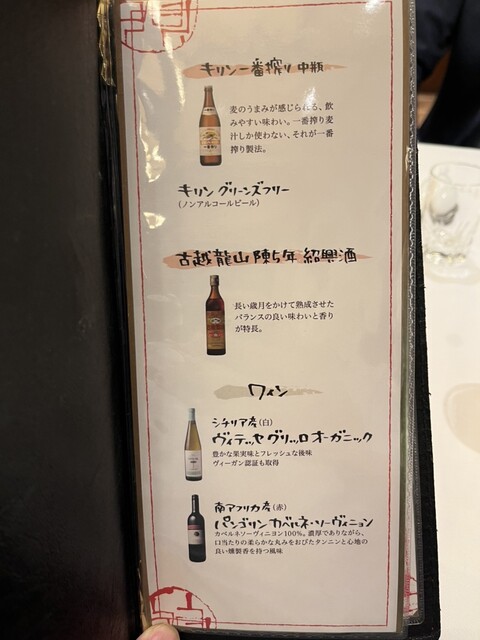 キリン一番搾り 中瓶
麦のうまみが感じられる、飲
みやすい味わい。一番搾り麦
汁しか使わない、それが一番
搾り製法。
キリン グリーンズフリー
(ノンアルコールビール)
古越龍山 陳5年 紹興酒
長い歳月をかけて熟成させた
バランスの良い味わいと香り
が特長。
ワイン
シチリア産(白)
ヴィテッセ グリッロ オーガニック
豊かな果実味とフレッシュな後味
ヴィーガン認証も取得
南アフリカ産(赤)
パンゴリン カベルネ・ソーヴィニョン
カベルネソーヴィニヨン100%。濃厚でありながら、
口当たりの柔らかな丸みをおびたタンニンと心地の
良い燻製香を持つ風味